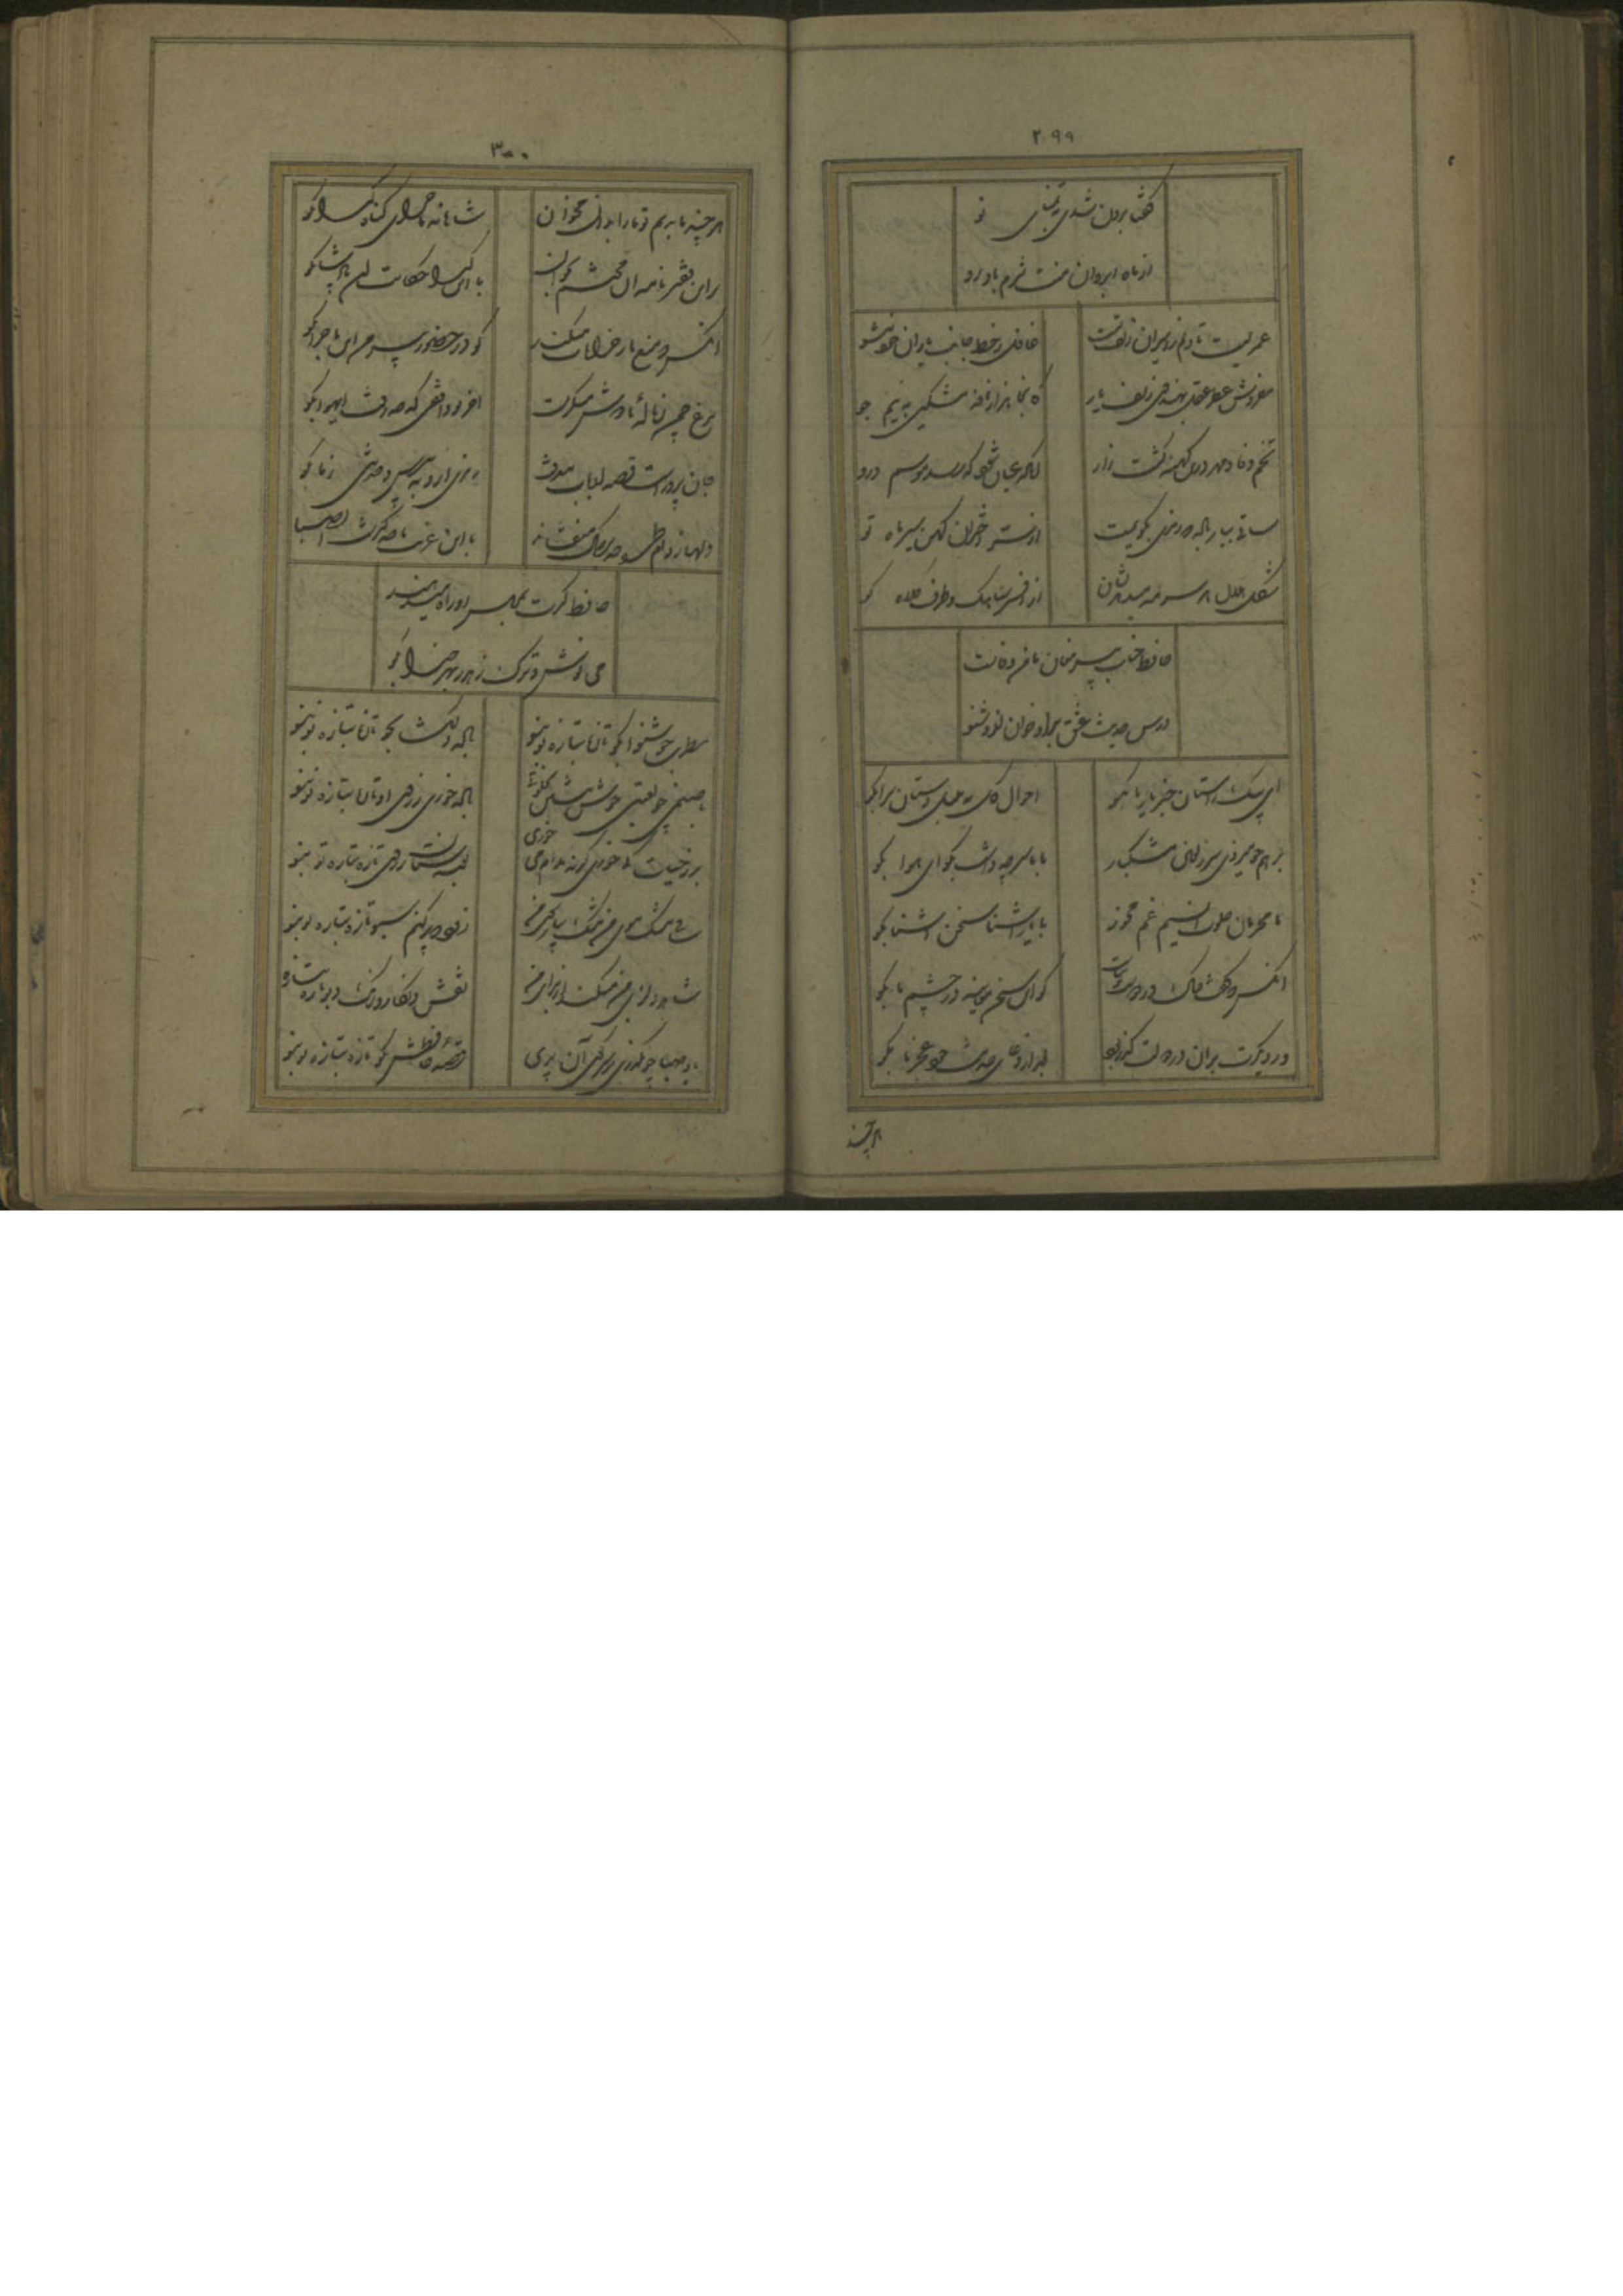 ۲۹۹
گفتا برون شدی بتماشای تو
از ماه ابروان منت شرم باد رو
عمریست تا دلم ز اسیران زلف تست
غافل ز حفظ جانب یاران خود مشو
مفروش عطر عقل بهندوی زلف یار
کانجا هزار نافه مشکین به نیم جو
تخم وفا و مهر درین کهنه کشت زار
آنگه عیان شود که رسد موسم درو
ساقی بیار باده که رمزی بگویمت
از سر اختران کهن سیر و ماه تو
شکل هلال هر سر مه میدهد نشان
از افسر سیامک و طرف کلاه
حافظ جناب پیر مغان مامن وفاست
درس حدیث عشق برو خوان و زو شنو
ای پیک راستان خبر یار ما بگو
احوال گل به بلبل دستان سرا بگو
بر هم چو میزدی سر زلفین مشکبار
با ما سر چه داشت بگو ای صبا بگو
ما محرمان خلوت انسیم غم مخور
با یار آشنا سخن آشنا بگو
آنکس که گفت خاک در دوست توتیاست
گو این سخن معاینه در چشم ما بگو
ور دیگرت بر آن در دولت گذر بود
بعد از دعا حدیث بگو
هر چند
۳۰۰
هر چند ما بدیم تو ما را بدان مگیر
شاهانه ماجرای گناه گدا بگو
بر این فقیر نامه آن محتشم بخوان
با این گدا حکایت آن پادشا بگو
آنکس که منع ما ز خرابات میکند
گو در حضور پیر من این ماجرا بگو
مرغ چمن ز ناله ما دوش میگریست
آخر تو واقفی که چه رفت ای صبا بگو
جان پرورست قصه ارباب معرفت
رمزی برو بپرس و حدیثی ز ما بگو
دلها ز دام طره چو بر خاک میفشاند
با این غریب ما چه گذشت ای صبا
حافظ گرت بمجلس او راه میدهند
می نوش و ترک زرق ز بهر خدا بگو
مطرب خوشنوا بگو تازه بتازه نو بنو
باده دلگشا بجو تازه بتازه نو بنو
با صنمی چو لعبتی خوش بنشین بخلوتی
تازه بتازه نو بنو
بر ز حیات کی خوری گر نه مدام می خوری
تازه بتازه نو بنو
زود که پر کنم سبو تازه بتازه نو بنو
شاهد دلربای من میکند از برای من
نقش و نگار و رنگ و بو تازه بتازه
باد صبا چو بگذری بر سر کوی آن پری
قصه حافظش بگو تازه بتازه نو بنو